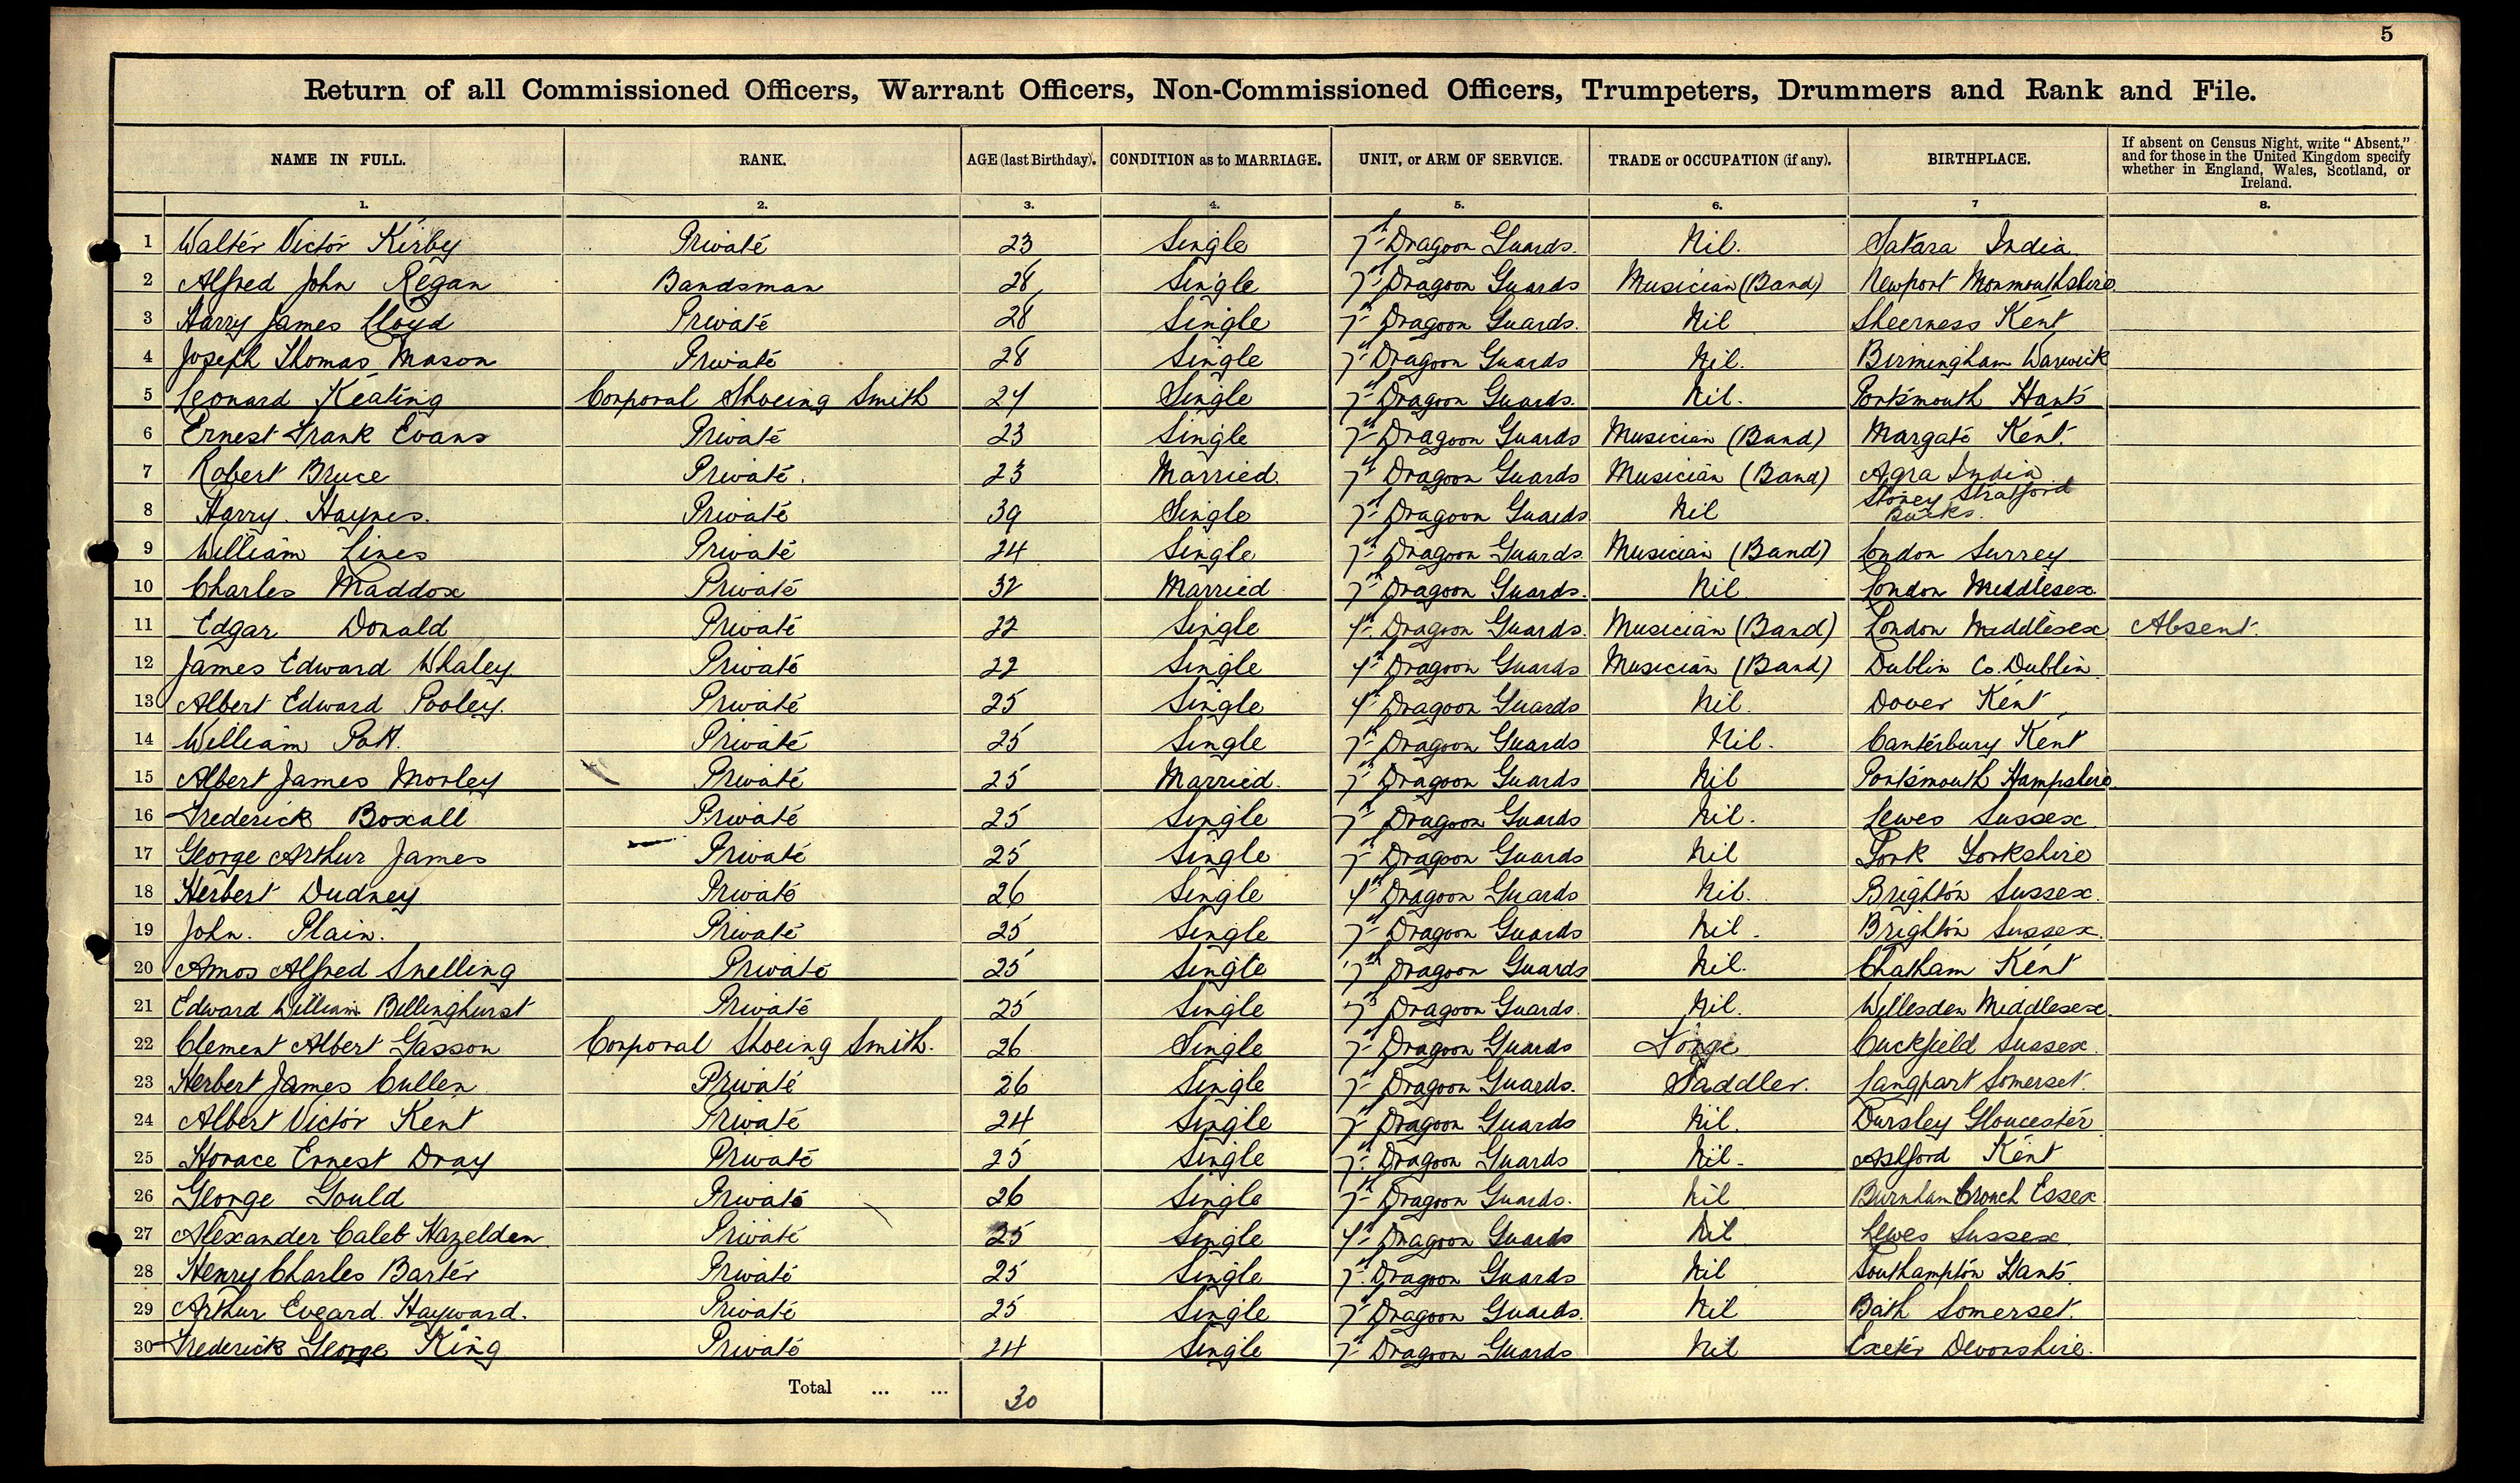 5
Return of all Commissioned Officers, Warrant Officers, Non-Commissioned Officers, Trumpeters, Drummers and Rank and File.
NAME IN FULL. RANK. AGE (last Birthday). CONDITION as to MARRIAGE. UNIT, or ARM OF SERVICE. TRADE or OCCUPATION (if any). BIRTHPLACE. If absent on Census Night, write "Absent," and for those in the United Kingdom specify whether in England, Wales, Scotland, or Ireland.
1. 2. 3. 4. 5. 6. 7 8.
1 Walter Victor Kirby Private 23 Single 7th Dragoon Guards. Nil. Satara India
2 Alfred John Regan Bandsman 28 Single 7th Dragoon Guards Musician (Band) Newport Monmouthshire.
3 Harry James Lloyd Private 28 Single 7th Dragoon Guards. Nil Sheerness Kent
4 Joseph Thomas Mason Private 28 Single 7th Dragoon Guards Nil. Birmingham Warwick
5 Leonard Keating Corporal Shoeing Smith 24 Single 7th Dragoon Guards. Nil. Portsmouth Hants
6 Ernest Frank Evans Private 23 Single 7th Dragoon Guards Musician (Band) Margate Kent.
7 Robert Bruce Private. 23 Married. 7th Dragoon Guards Musician (Band) Agra India
8 Harry. Haynes. Private 39 Single 7th Dragoon Guards Nil Stoney Stratford Bucks.
9 William Lines Private 24 Single 7th Dragoon Guards. Musician (Band) London Surrey
10 Charles Maddox Private 32 Married 7th Dragoon Guards. Nil London Middlesex.
11 Edgar Donald Private 22 Single 7th Dragoon Guards. Musician (Band) London Middlesex Absent.
12 James Edward Whaley. Private 22 Single 7th Dragoon Guards Musician (Band) Dublin Co. Dublin.
13 Albert Edward Pooley. Private 25 Single 7th Dragoon Guards Nil. Dover Kent
14 William Pott. Private 25 Single 7th Dragoon Guards Nil. Canterbury Kent
15 Albert James Morley Private 25 Married. 7th Dragoon Guards Nil Portsmouth Hampshire.
16 Frederick Boxall Private 25 Single 7th Dragoon Guards Nil. Lewes Sussex.
17 George Arthur James Private 25 Single 7th Dragoon Guards Nil York Yorkshire
18 Herbert Dudney Private 26 Single 7th Dragoon Guards Nil. Brighton Sussex.
19 John. Plain. Private 25 Single 7th Dragoon Guards Nil. Brighton Sussex.
20 Amos Alfred Snelling Private 25 Single 7th Dragoon Guards Nil. Chatham Kent
21 Edward William Billinghurst Private 25 Single 7th Dragoon Guards. Nil. Willesden Middlesex.
22 Clement Albert Gasson Corporal Shoeing Smith. 26 Single 7th Dragoon Guards Forge Cuckfield Sussex.
23 Herbert James Cullen Private 26 Single 7th Dragoon Guards. Saddler. Langport Somerset.
24 Albert Victor Kent Private 24 Single 7th Dragoon Guards Nil. Dursley Gloucester
25 Horace Ernest Dray Private 25 Single 7th Dragoon Guards Nil. Ashford Kent
26 George Gould Private 26 Single 7th Dragoon Guards. Nil Burnham Crouch Essex
27 Alexander Caleb Hazelden Private 25 Single 7th Dragoon Guards Nil Lewes Sussex
28 Henry Charles Barter Private 25 Single 7th Dragoon Guards Nil Southampton Hants.
29 Arthur Eveard. Hayward. Private 25 Single 7th Dragoon Guards. Nil Bath Somerset.
30 Frederick George King Private 24 Single 7th Dragoon Guards Nil Exeter Devonshire.
Total ... ... 30